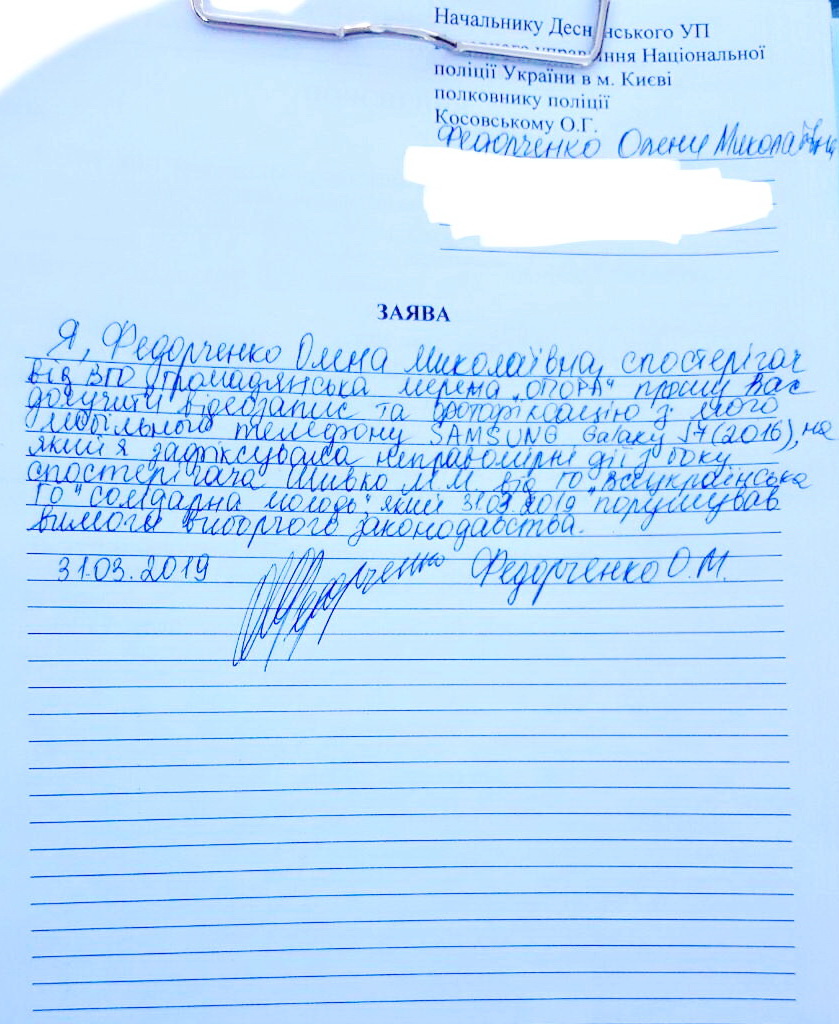 Начальнику Деснянського УП
управління Національної
поліції України в м. Києві
полковнику поліції
Косовському О.Г.
Федорченко Олени Миколаївни
ЗАЯВА
Я, Федорченко Олена Миколаївна, спостерігач
від ВГО Громадянська мережа "ОПОРА" прошу Вас
долучити відеозапис та фотофіксацію з мого
мобільного телефону SAMSUNG Galaxy J7(2016), на
який я зафіксувала неправомірні дії з боку
спостерігача Шивко М.М. від ГО "Всеукраїнська
ГО "Солідарна молодь" який 31.03.2019 порушував
вимоги виборчого законодавства.
31.03.2019 Федорченко Федорченко О.М.